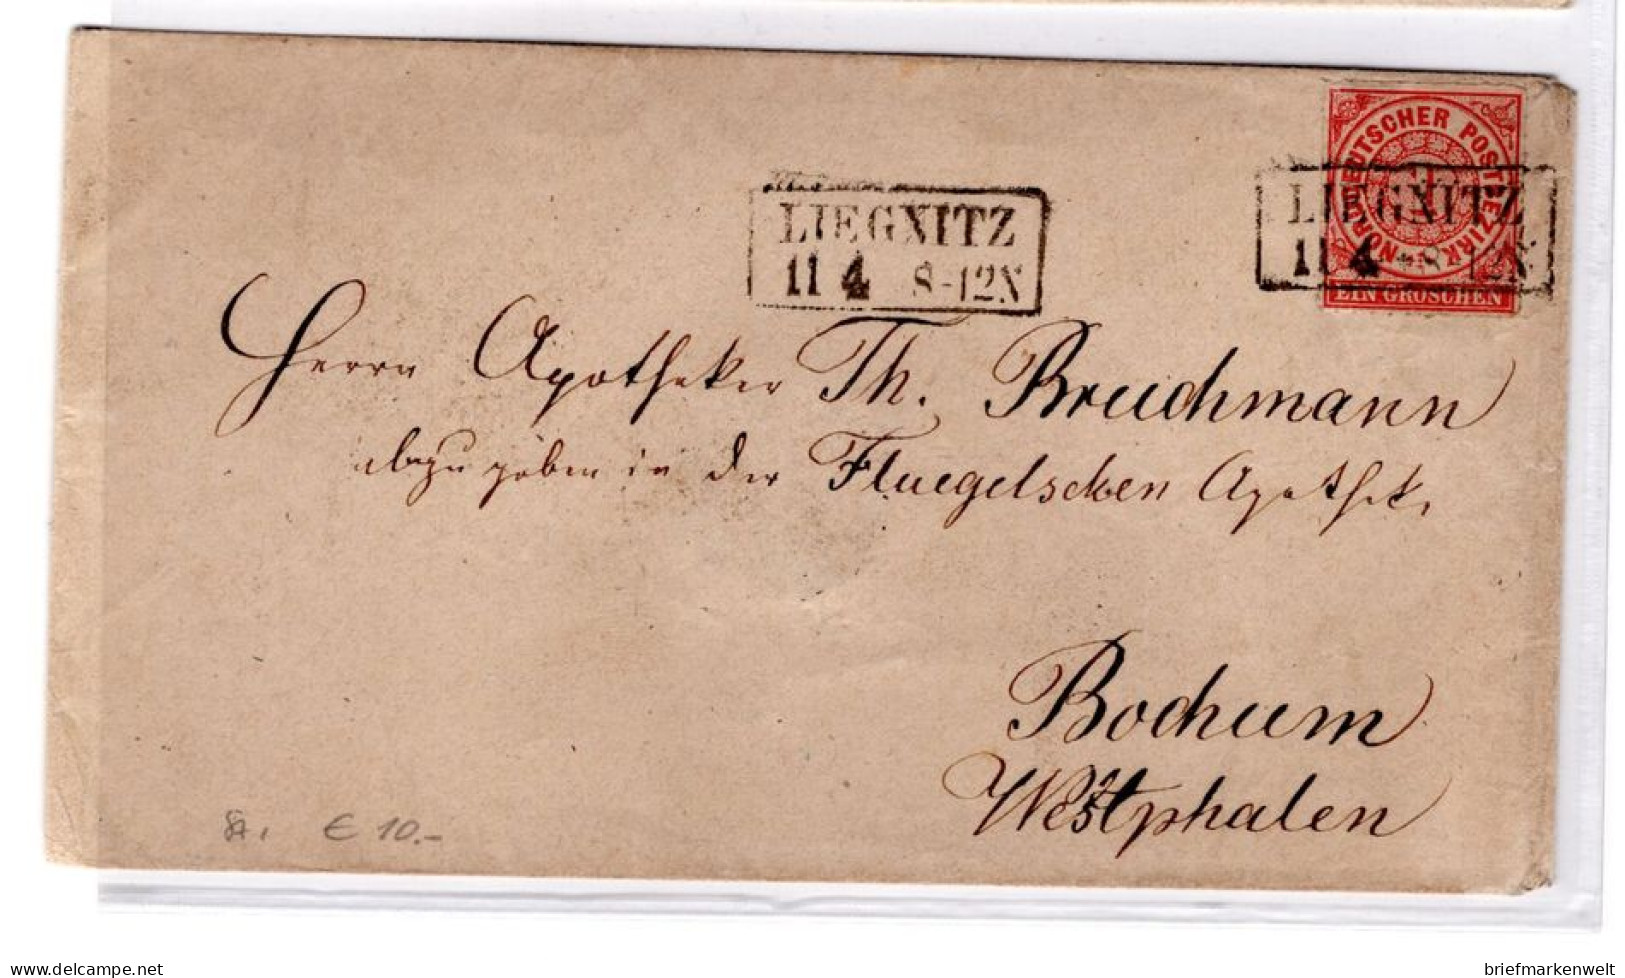 NORDDEUTSCHER POSTBEZIRK
1
EIN GROSCHEN
LIEGNITZ
11 4 8-12N
LIEGNITZ
11 4 8-12N
Herrn Apotheker Th. Bruchmann
abzugeben in der Fluegelschen Apotheke
Bochum
Westphalen
€ 10.-
delcampe.net
briefmarkenwelt